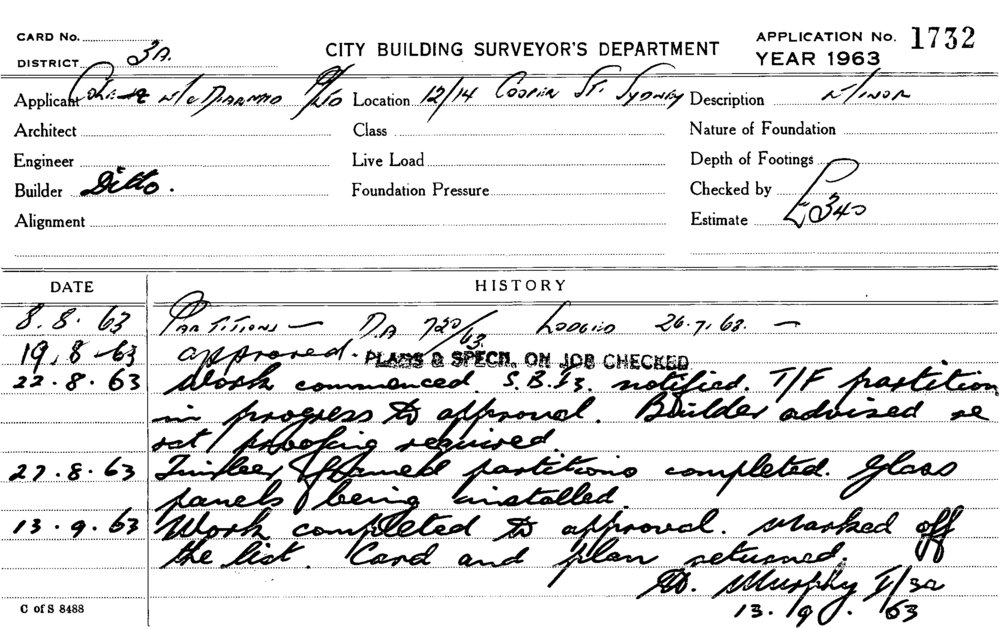 CARD No.
DISTRICT 3A.
CITY BUILDING SURVEYOR'S DEPARTMENT
APPLICATION No. 1732
YEAR 1963
Applicant P/L Location 12/14 Cooper St. Sydney Description Minor
Architect Class Nature of Foundation
Engineer Live Load Depth of Footings
Builder Ditto. Foundation Pressure Checked by
Alignment Estimate £340
DATE HISTORY
8.8.63 Partitions — D.A 720/63. Lodged 26.7.63. —
19.8.63 approved. PLANS & SPECN. ON JOB CHECKED
22.8.63 Work commenced. notified. T/F partition
in progress to approval. Builder advised re
rat proofing required
27.8.63 Timber framed partitions completed. Glass
panels being installed
13.9.63 Work completed to approval. Marked off
the list. Card and plan returned.
Murphy I/3a
13.9.63
C of S 8488